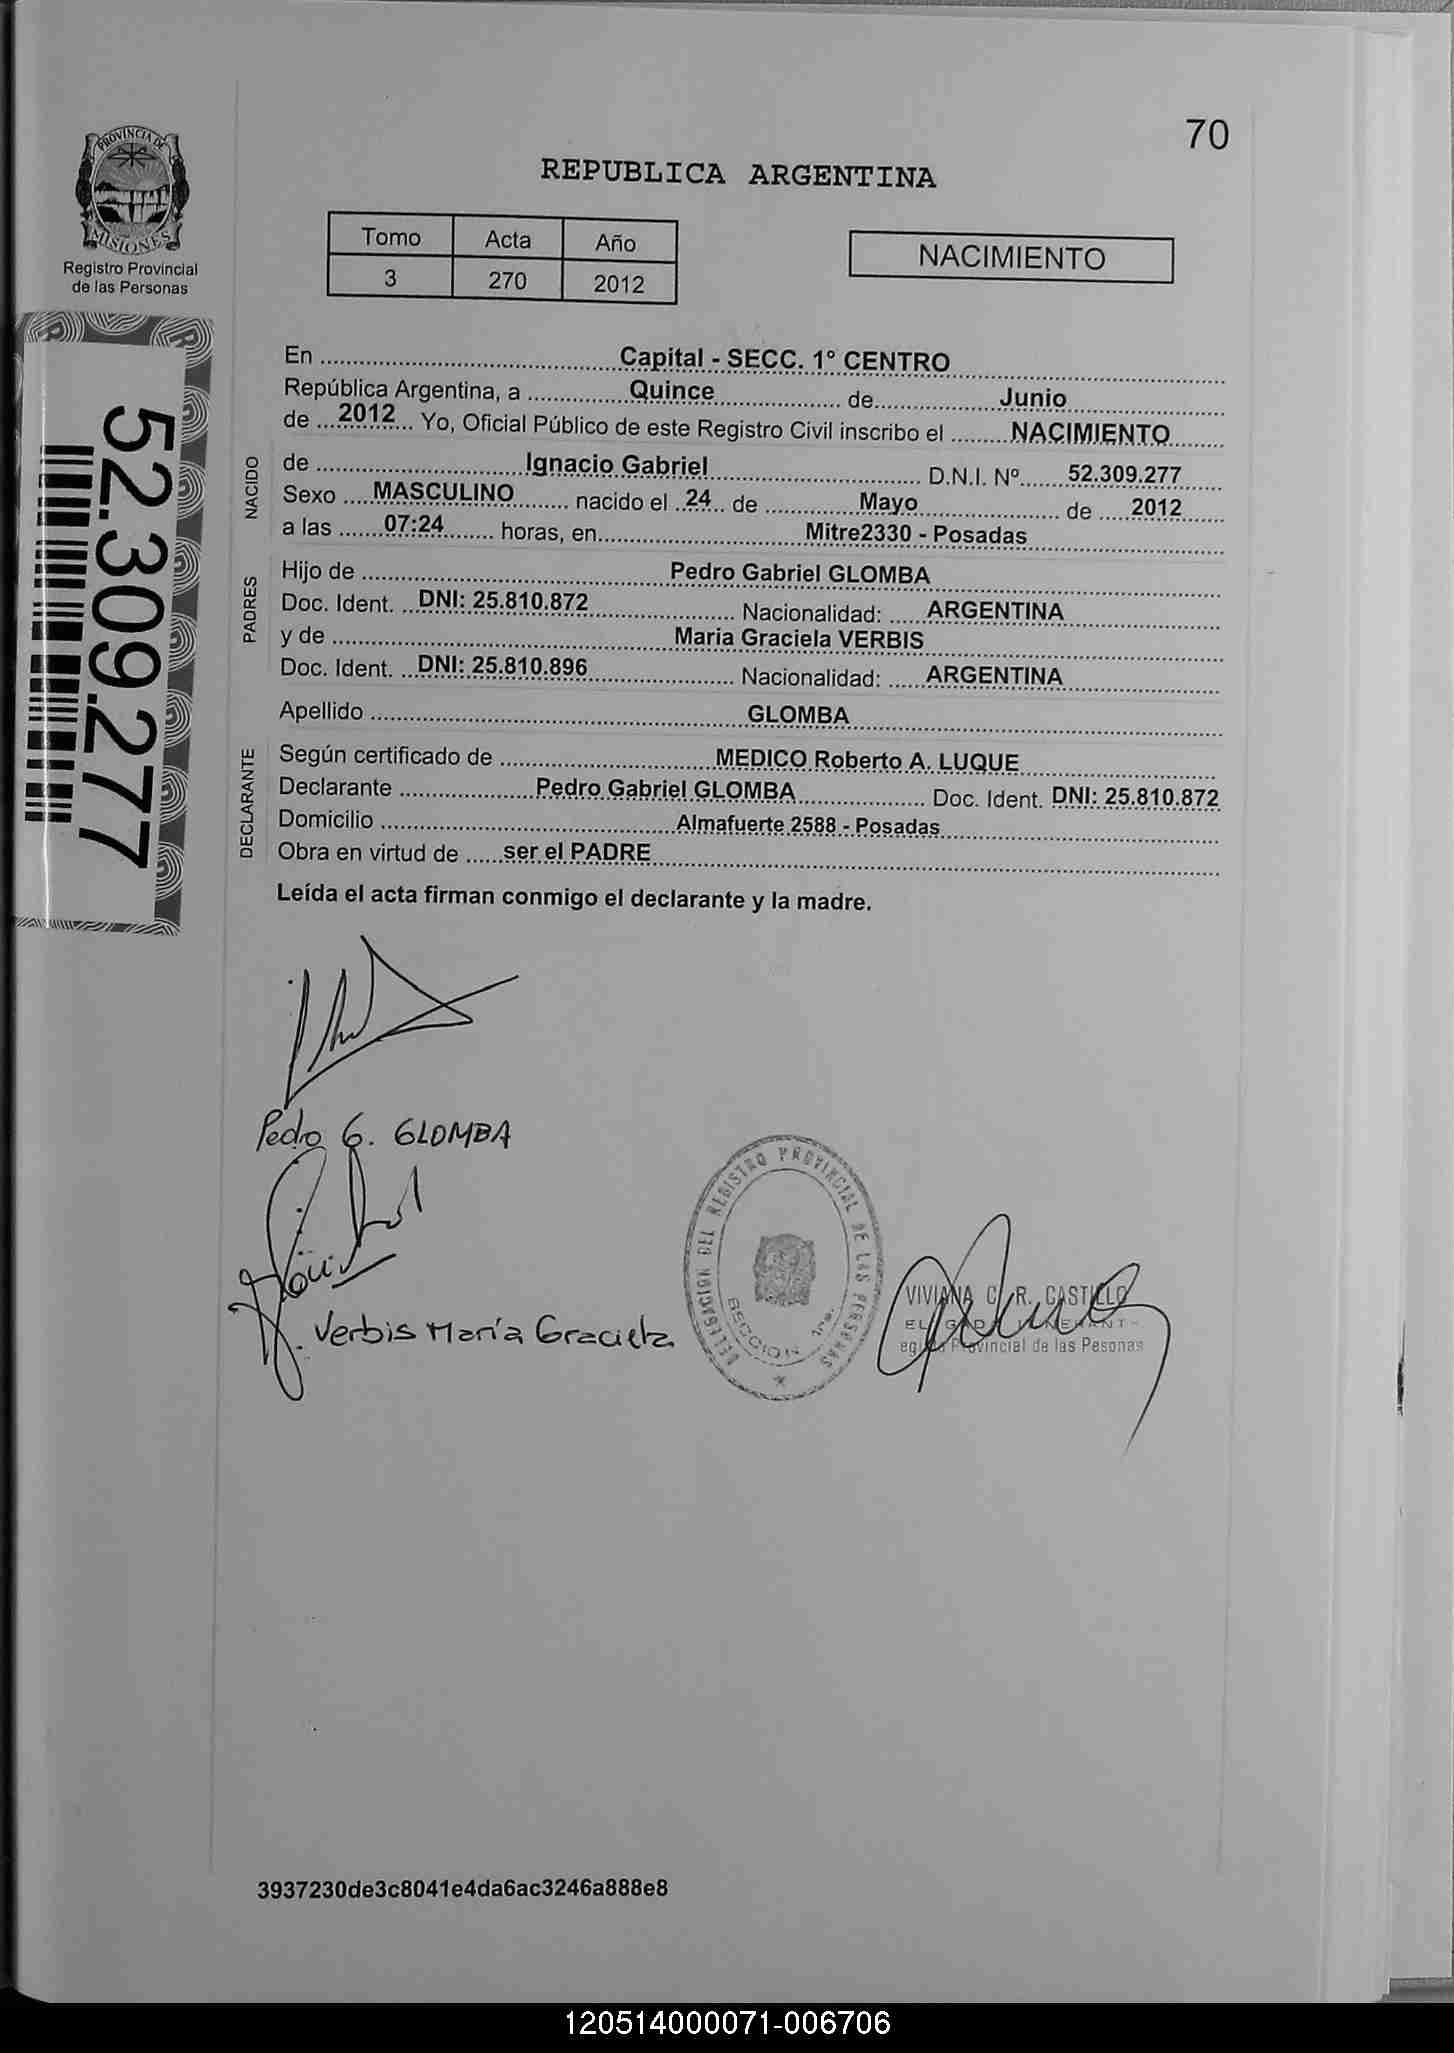 70
PROVINCIA DE
MISIONES
Registro Provincial
de las Personas
REPUBLICA ARGENTINA
Tomo Acta Año
3 270 2012
NACIMIENTO
52.309.277
En Capital - SECC. 1° CENTRO
República Argentina, a Quince de Junio
de 2012 Yo, Oficial Público de este Registro Civil inscribo el NACIMIENTO
NACIDO
de Ignacio Gabriel D.N.I. Nº 52.309.277
Sexo MASCULINO nacido el 24 de Mayo de 2012
a las 07:24 horas, en Mitre2330 - Posadas
PADRES
Hijo de Pedro Gabriel GLOMBA
Doc. Ident. DNI: 25.810.872 Nacionalidad: ARGENTINA
y de Maria Graciela VERBIS
Doc. Ident. DNI: 25.810.896 Nacionalidad: ARGENTINA
Apellido GLOMBA
DECLARANTE
Según certificado de MEDICO Roberto A. LUQUE
Declarante Pedro Gabriel GLOMBA Doc. Ident. DNI: 25.810.872
Domicilio Almafuerte 2588 - Posadas
Obra en virtud de ser el PADRE
Leída el acta firman conmigo el declarante y la madre.
Pedro G. GLOMBA
Verbis María Graciela
DELEGACION DEL REGISTRO PROVINCIAL DE LAS PERSONAS
SECCION 1ra.
VIVIANA C. R. CASTILLO
Provincial de las Pesonas
3937230de3c8041e4da6ac3246a888e8
120514000071-006706